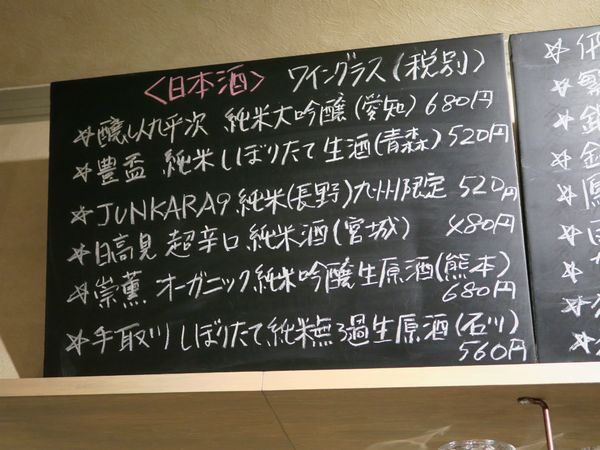 <日本酒> ワイングラス(税別)
☆醸し人九平次 純米大吟醸(愛知) 680円
☆豊盃 純米しぼりたて生酒(青森) 520円
☆JUNKARA9 純米(長野)九州限定 520円
☆日高見 超辛口純米酒(宮城) 480円
☆崇薫 オーガニック純米吟醸生原酒(熊本)
680円
☆手取川 しぼりたて純米無ろ過生原酒(石川)
560円